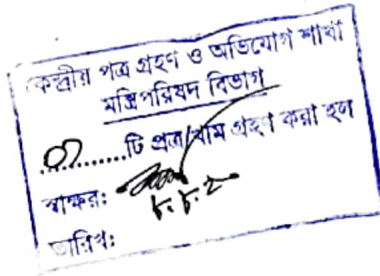 কেন্দ্রীয় পত্র গ্রহণ ও অভিযোগ শাখা
মন্ত্রিপরিষদ বিভাগ
............টি পত্র/খাম গ্রহণ করা হল
স্বাক্ষর:
৮.৮.২
তারিখ: